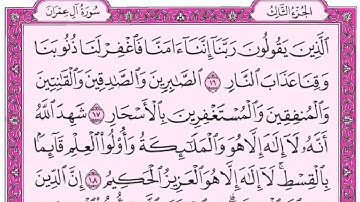 الجزء الثالث سورة آل عمران
ٱلَّذِينَ يَقُولُونَ رَبَّنَآ إِنَّنَآ ءَامَنَّا فَٱغْفِرْ لَنَا ذُنُوبَنَا
وَقِنَا عَذَابَ ٱلنَّارِ ١٦ ٱلصَّٰبِرِينَ وَٱلصَّٰدِقِينَ وَٱلْقَٰنِتِينَ
وَٱلْمُنفِقِينَ وَٱلْمُسْتَغْفِرِينَ بِٱلْأَسْحَارِ ١٧ شَهِدَ ٱللَّهُ
أَنَّهُۥ لَآ إِلَٰهَ إِلَّا هُوَ وَٱلْمَلَٰٓئِكَةُ وَأُو۟لُوا۟ ٱلْعِلْمِ قَآئِمًۢا
بِٱلْقِسْطِ لَآ إِلَٰهَ إِلَّا هُوَ ٱلْعَزِيزُ ٱلْحَكِيمُ ١٨ إِنَّ ٱلدِّينَ